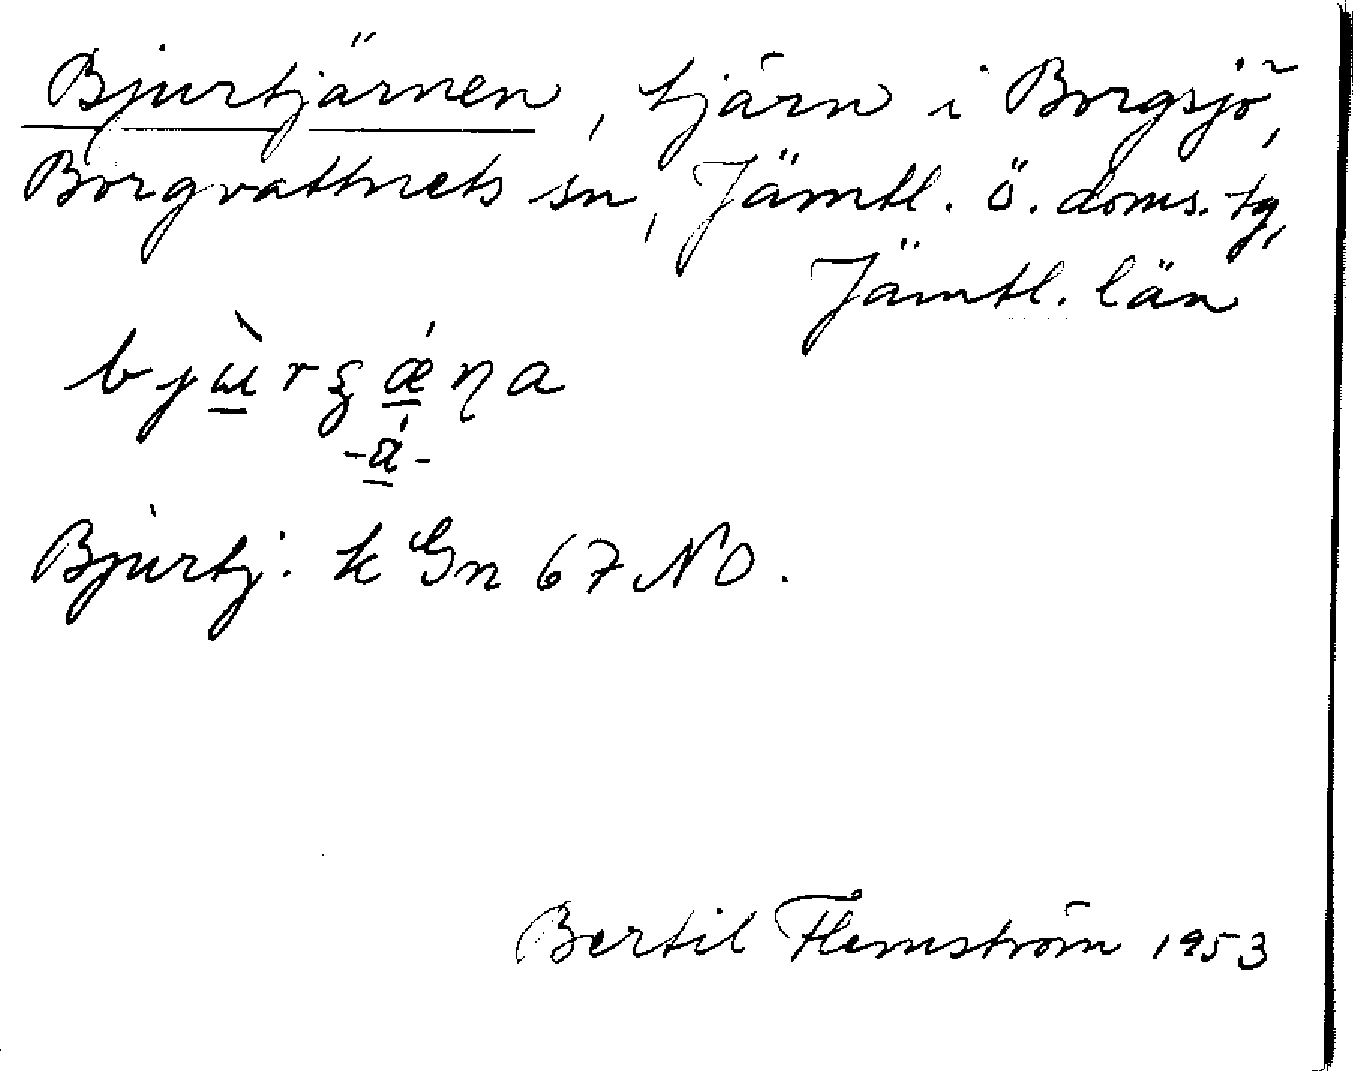 Bjurtjärnen, tjärn i Borgsjö,
Borgvattnets sn, Jämtl. ö. doms. tg,
Jämtl. län
Bjurtj. k Gn 67 NO.
Bertil Flemström 1953